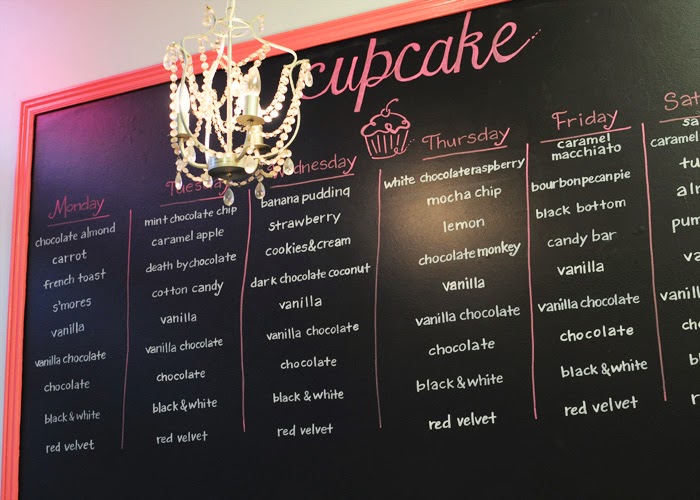 cupcake
Monday
chocolate almond
carrot
french toast
s'mores
vanilla
vanilla chocolate
chocolate
black & white
red velvet
Tuesday
mint chocolate chip
caramel apple
death by chocolate
cotton candy
vanilla
vanilla chocolate
chocolate
black & white
red velvet
dnesday
banana pudding
strawberry
cookies & cream
dark chocolate coconut
vanilla
vanilla chocolate
chocolate
black & white
red velvet
Thursday
white chocolate raspberry
mocha chip
lemon
chocolate monkey
vanilla
vanilla chocolate
chocolate
black & white
red velvet
Friday
caramel
macchiato
bourbon pecan pie
black bottom
candy bar
vanilla
vanilla chocolate
chocolate
black & white
red velvet
Sat
sa
caramel
tu
alm
pum
va
vanilla
ch